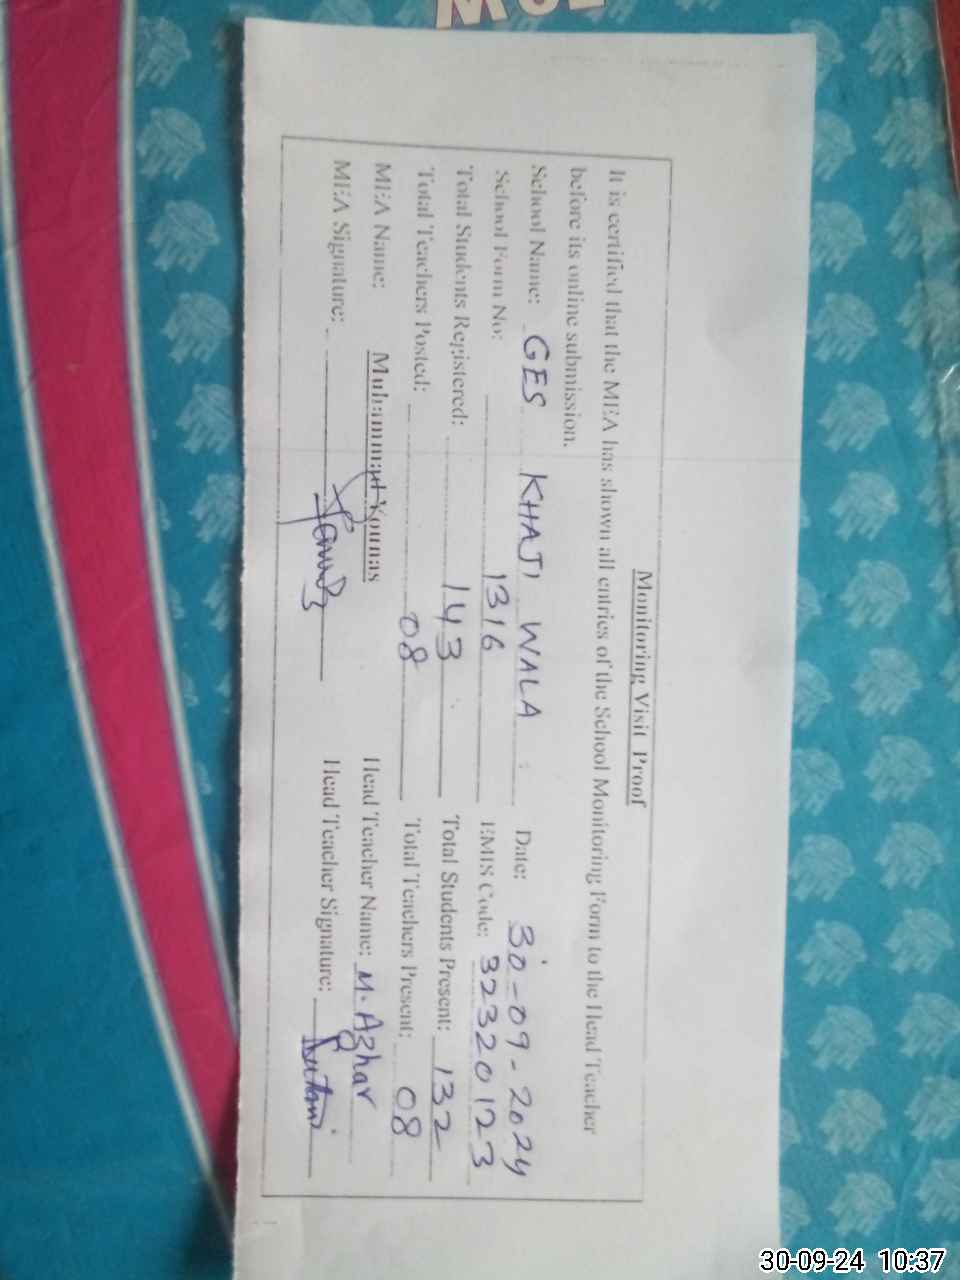 Monitoring Visit Proof
It is certified that the MEA has shown all entries of the School Monitoring Form to the Head Teacher
before its online submission.
School Name: GES KHAJI WALA Date: 30-09-2024
School Form No: 1316 EMIS Code: 32320123
Total Students Registered: 143 Total Students Present: 132
Total Teachers Posted: 08 Total Teachers Present: 08
MEA Name: Muhammad Younas Head Teacher Name: M. Azhar
MEA Signature: Head Teacher Signature:
30-09-24 10:37